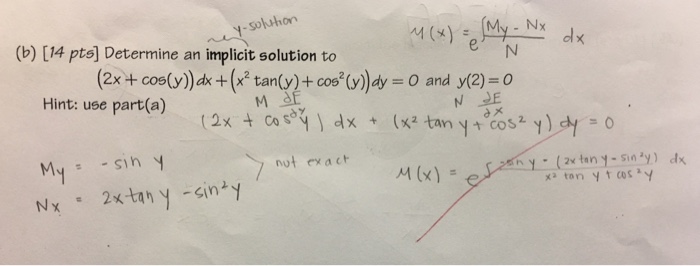 y-solution
M(x) = e^∫ My - Nx / N dx
(b) [14 pts] Determine an implicit solution to
(2x + cos(y))dx + (x² tan(y) + cos²(y))dy = 0 and y(2) = 0
Hint: use part(a)
M ∂F/∂y N ∂F/∂x
(2x + cos y) dx + (x² tan y + cos² y) dy = 0
My = - sin y
Nx = 2x tan y - sin²y
not exact
M(x) = e^∫ - (2x tan y - sin²y) / x² tan y + cos²y dx